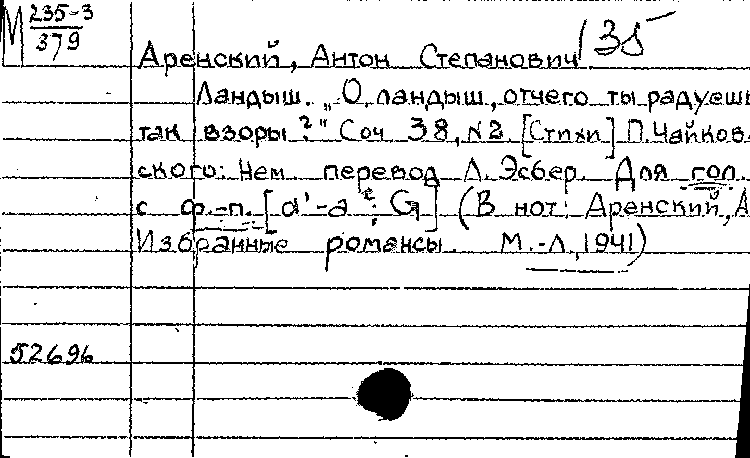 М 235-3
379
Аренский, Антон Степанович 35
Ландыш. „О, ландыш, отчего ты радуешь
так взоры?" Соч 38, №2. [Стихи] П. Чайков-
ского. Нем. перевод Л. Эсбер. Для гол.
с ф.-п. [d'-a²: G] (В нот: Аренский, А
Избранные романсы. М.-Л., 1941)
52696